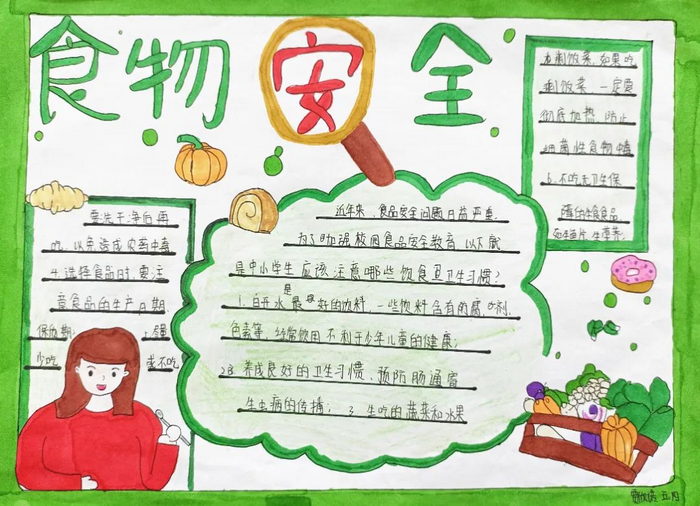 食物安全
近年来,食品安全问题日益严重,
为了加强校园食品安全教育,以下就
是中小学生应该注意哪些饮食卫生习惯?
1.白开水是最好的饮料,一些饮料含有防腐剂,
色素等,经常饮用不利于少年儿童的健康;
2 养成良好的卫生习惯、预防肠道寄
生虫病的传播; 3 生吃的蔬菜和水果
要洗干净后再
吃,以免造成农药中毒
4.选择食品时,要注
意食品的生产日期
保质期;
少吃 或不吃
剩饭菜,如果吃
剩饭菜,一定要
彻底加热,防止
细菌性食物中毒
6.不吃无卫生保
障的生食食品
如生鱼片,生荸荠.
五四